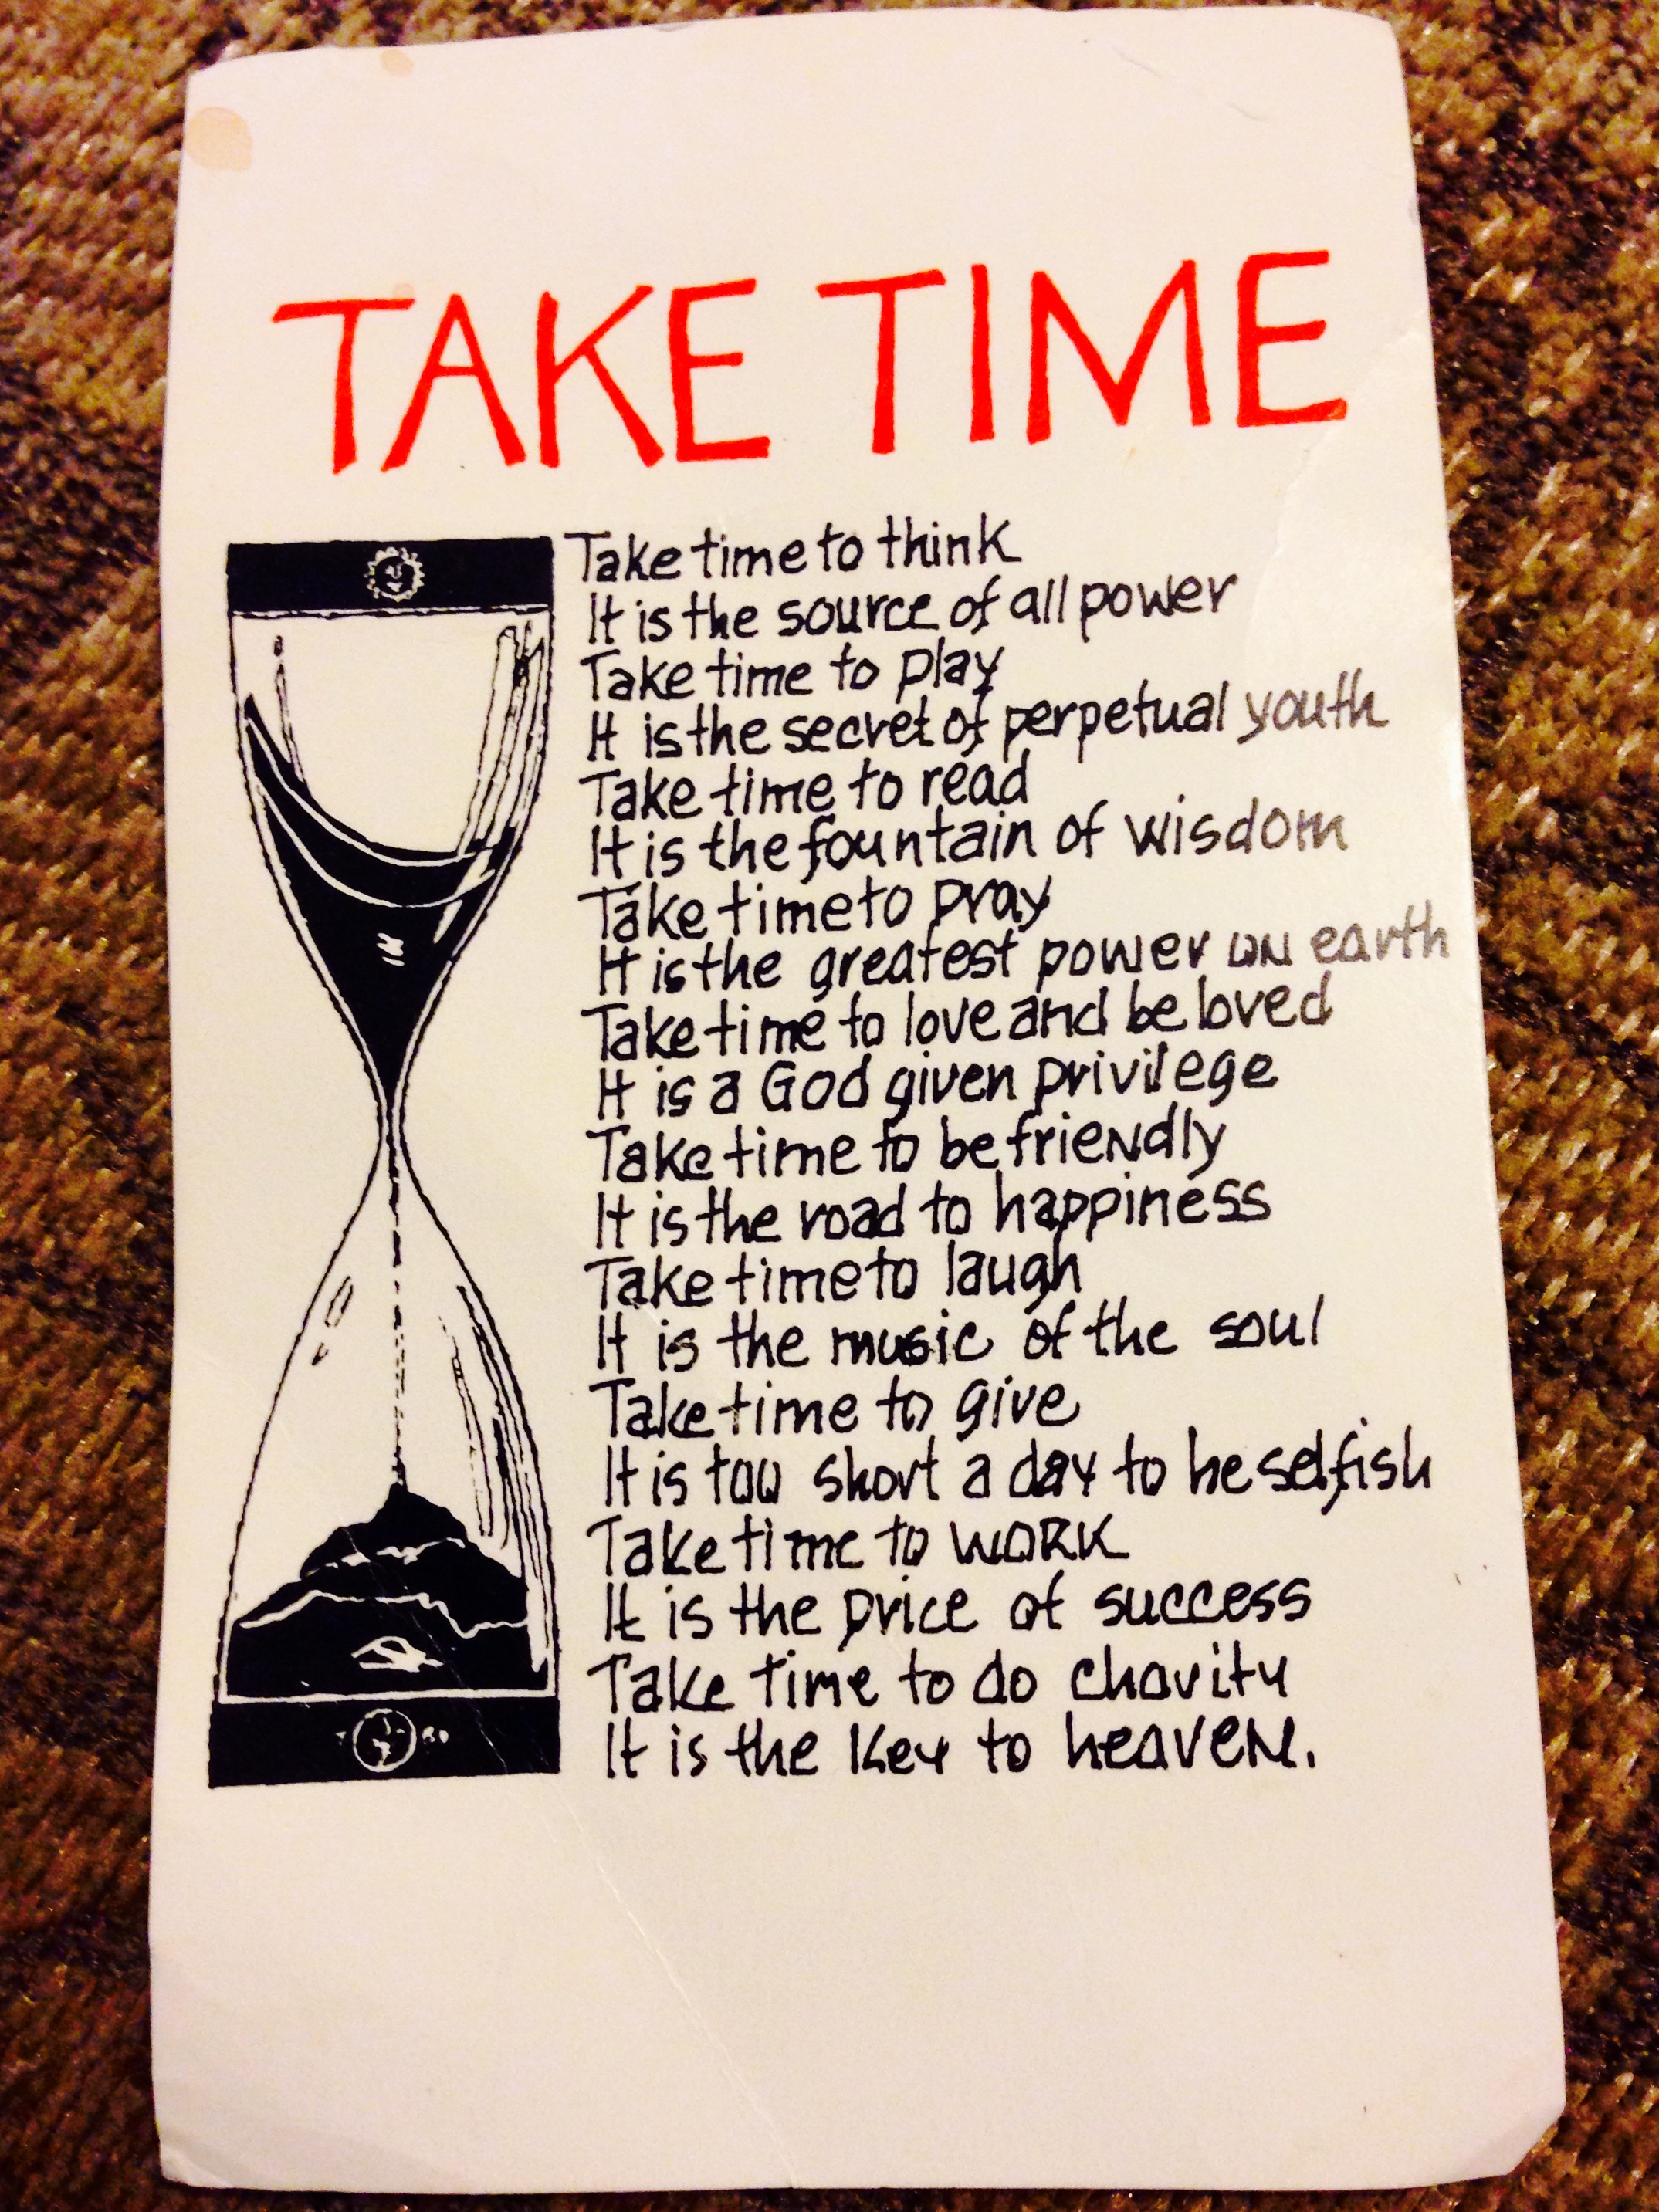 TAKE TIME
Take time to think
It is the source of all power
Take time to play
It is the secret of perpetual youth
Take time to read
It is the fountain of wisdom
Take time to pray
It is the greatest power on earth
Take time to love and be loved
It is a God given privilege
Take time to be friendly
It is the road to happiness
Take time to laugh
It is the music of the soul
Take time to give
It is too short a day to be selfish
Take time to WORK
It is the price of success
Take time to do charity
It is the Key to heaven.